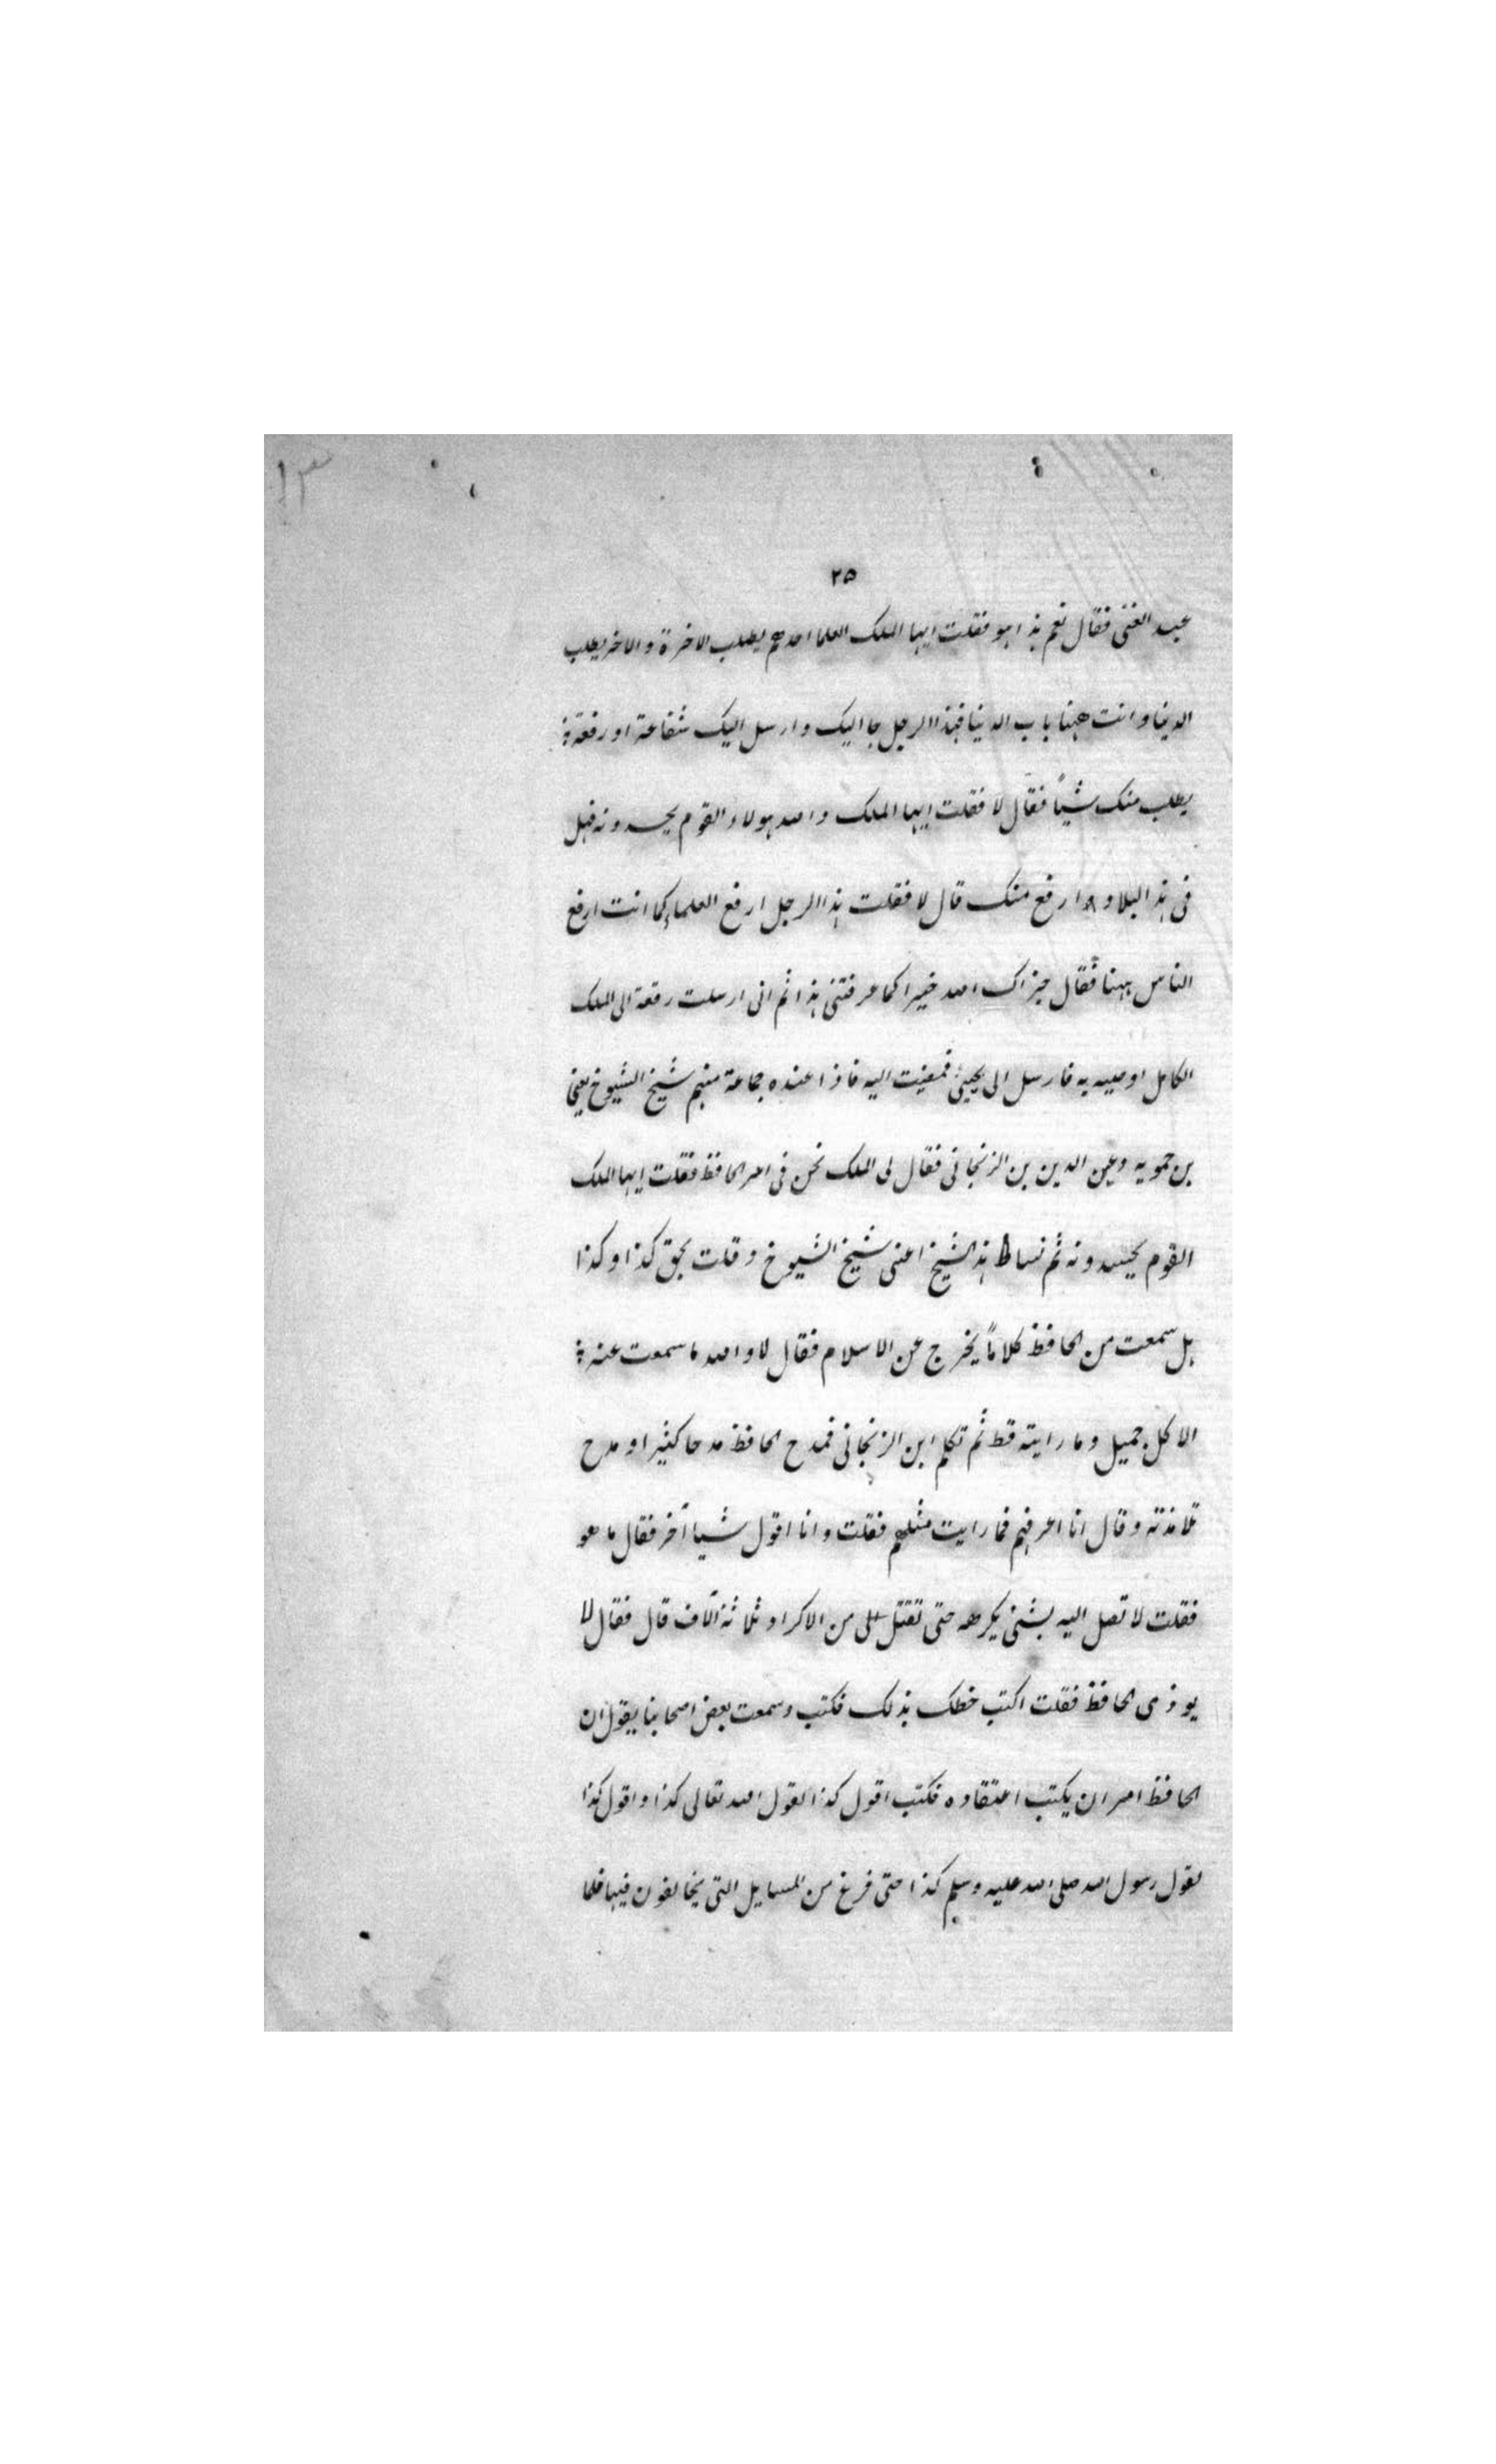 ١٣
٢٥
عبد الغنى فقال نعم هذا هو فقلت ايها الملك العلما احدهم يطلب الاخرة والاخر يطلب
الدنيا وانت ههنا باب الدنيا فهذا الرجل جا اليك وارسل اليك شفاعة او رقعة
يطلب منك شيأً فقال لا فقلت ايها الملك والله هولاء القوم يحسدونه فهل
فى هذ البلاد ارفع منك قال لا فقلت هذا الرجل ارفع العلماء كما انت ارفع
الناس ههنا فقال جزاك الله خيرا كما عرفتنى هذا ثم انى ارسلت رقعة الى الملك
الكامل اوصيه به فارسل الى يجيئ فمضيت اليه فاذا عنده جماعة منهم شيخ الشيوخ يعنى
بن حمويه وعين الدين بن الزنجانى فقال لى الملك نحن فى امر الحافظ فقلت ايها الملك
القوم يحسدونه ثم هذ الشيخ اعنى شيخ الشيوخ وقلت بحق كذا وكذا
هل سمعت من الحافظ كلاماً يخرج عن الاسلام فقال لا والله ما سمعت عنه
الا كل جميل وما رايته قط ثم تكلم ابن الزنجانى فمدح الحافظ مدحا كثيرا ومدح
تلامذته وقال انا اعرفهم فما رايت مثلهم فقلت وانا اقول شيا آخر فقال ما هو
فقلت لا تصل اليه بشئ يكرهه حتى تقتل من الاكراد ثلاثة آلاف قال فقال لا
يوذى الحافظ فقلت اكتب خطك بذلك فكتب وسمعت بعض اصحابنا يقول ان
الحافظ امر ان يكتب اعتقاده فكتب اقول كذا لقول الله تعالى كذا واقول كذا
لقول رسول الله صلى الله عليه وسلم كذا حتى فرغ من المسايل التى يخالفون فيها فلما